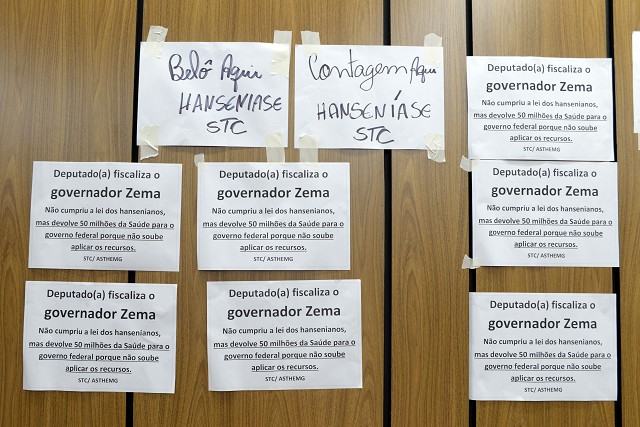 Belô Aqui
HANSENIASE
STC
Contagem Aqui
HANSENÍASE
STC
Deputado(a) fiscaliza o
governador Zema
Não cumpriu a lei dos hansenianos,
mas devolve 50 milhões da Saúde para o
governo federal porque não soube
aplicar os recursos.
STC/ ASTHEMG
Deputado(a) fiscaliza o
governador Zema
Não cumpriu a lei dos hansenianos,
mas devolve 50 milhões da Saúde para o
governo federal porque não soube
aplicar os recursos.
STC/ ASTHEMG
Deputado(a) fiscaliza o
governador Zema
Não cumpriu a lei dos hansenianos,
mas devolve 50 milhões da Saúde para o
governo federal porque não soube
aplicar os recursos.
STC/ ASTHEMG
Deputado(a) fiscaliza o
governador Zema
Não cumpriu a lei dos hansenianos,
mas devolve 50 milhões da Saúde para o
governo federal porque não soube
aplicar os recursos.
STC/ ASTHEMG
Deputado(a) fiscaliza o
governador Zema
Não cumpriu a lei dos hansenianos,
mas devolve 50 milhões da Saúde para o
governo federal porque não soube
aplicar os recursos.
STC/ ASTHEMG
Deputado(a) fiscaliza o
governador Zema
Não cumpriu a lei dos hansenianos,
mas devolve 50 milhões da Saúde para o
governo federal porque não soube
aplicar os recursos.
STC/ ASTHEMG
Deputado(a) fiscaliza o
governador Zema
Não cumpriu a lei dos hansenianos,
mas devolve 50 milhões da Saúde para o
governo federal porque não soube
aplicar os recursos.
STC/ ASTHEMG